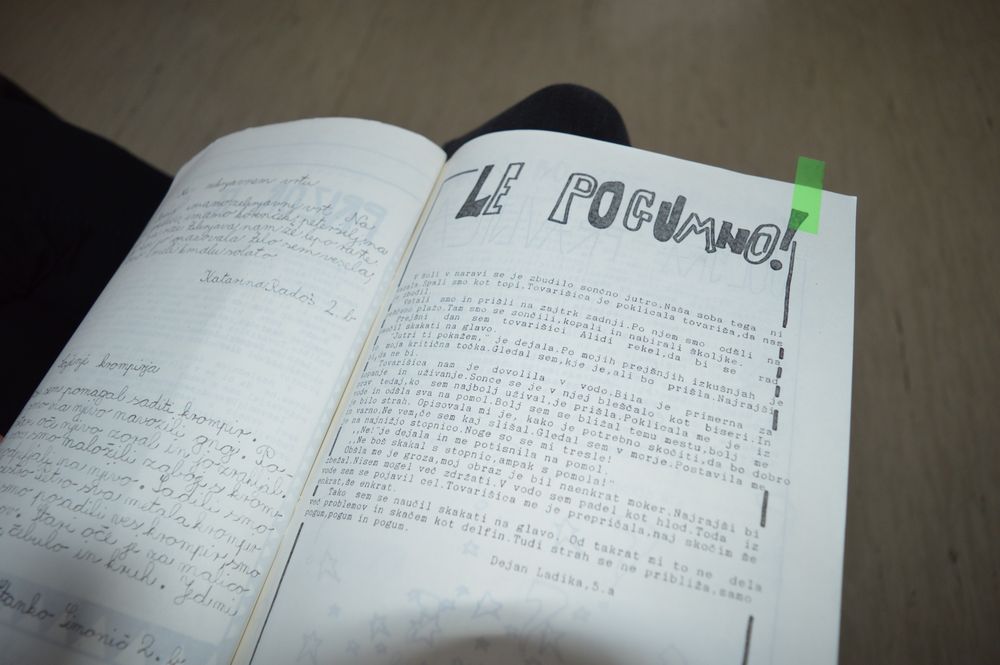 zelenjavnem vrtu
imamo zelenjavni vrt. Na
imamo korenček, peteršilj, ma
telo sem vesela,
solato.
Katarina Radoš 2. b
krompirja
sem pomagal saditi krompir.
na njivo navozili gnoj. Po-
oče njivo zoral in jo
smo naložili zaboje s krom-
peljali na njivo. Sadili smo
metala krompir
smo posadili ves krompir, smo
Stari oče je za malico
čebulo in kruh. Jedli
Stanko Simonič 2. b
LE POGUMNO!
V šoli v naravi se je zbudilo sončno jutro.Naša soba tega ni
Spali smo kot topi.Tovarišica je poklicala tovariša,da nas
zbudil.
Vstali smo in prišli na zajtrk zadnji.Po njem smo odšli na
plažo.Tam smo se sončili,kopali in nabirali školjke.
Prejšni dan sem tovarišici Alidi rekel,da bi se rad
skakati na glavo.
"Jutri ti pokažem," je dejala.Po mojih prejšnjih izkušnjah je
moja kritična točka.Gledal sem,kje je,ali bo prišla.Najrajši
da ne bi.
Tovarišica nam je dovolila v vodo.Bila je primerna za
kopanje in uživanje.Sonce se je v njej bleščalo kot biseri.In
prav tedaj,ko sem najbolj užival,je prišla.Poklicala me je iz
vode in odšla sva na pomol.Bolj sem se bližal temu mestu,bolj me
je bilo strah. Opisovala mi je, kako je potrebno skočiti,da bo dobro
in varno.Ne vem,če sem kaj slišal.Gledal sem v morje.Postavila me
je na najnižjo stopnico.Noge so se mi tresle!
,,Ne!"je dejala in me potisnila na pomol.
,,Ne boš skakal s stopnic,ampak s pomola!"
Obšla me je groza,moj obraz je bil naenkrat moker.Najrajši bi
zbežal.Nisem mogel več zdržati.V vodo sem padel kot hlod.Toda iz
vode sem se pojavil cel.Tovarišica me je prepričala,naj skočim še
enkrat,še enkrat.
Tako sem se naučil skakati na glavo. Od takrat mi to ne dela
več problemov in skačem kot delfin.Tudi strah se ne približa,samo
pogum,pogum in pogum.
Dejan Ladika,5.a